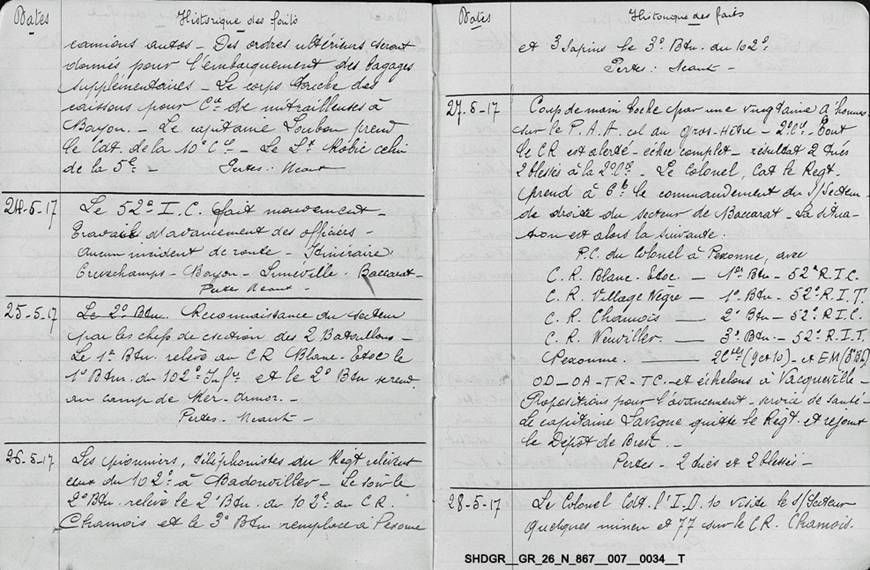 Dates
Historique des faits
camions autos - Des ordres ultérieurs seront
donnés pour l'embarquement des bagages
supplémentaires - Le corps touche des
caissons pour Cie de mitrailleuses à
Bayon. - Le capitaine Loubon prend
le Cdt de la 10e Cie - Le Lt celui
de la 5e - Pertes: Néant
24-5-17
Le 52e I.C. fait mouvement -
Travail d'avancement des officiers -
Aucun incident de route - Itinéraire
Crevechamps - Bayon - Luneville - Baccarat -
Pertes Néant -
25-5-17
Le 2e Btn. Reconnaissance du secteur
par les chefs de section des 2 Bataillons -
Le 1er Btn. relève au C R Blanc-Etoc le
1er Btn. du 102e Infie et le 2e Btn vient
au camp de Ker-Armor. -
Pertes - Néant -
26-5-17
Les pionniers, téléphonistes du Regt relèvent
ceux du 102e à Badonviller - Le soir le
2e Btn. relève le 2e Btn du 102e au C.R.
Chamois et le 3e Btn remplace à Pexonne
Dates
Historique des faits
et 3 Sapins le 3e Btn. du 102e.
Pertes: Néant -
27-5-17
Coup de main boche par une vingtaine d'hommes
sur le P.A.A. et au gros-Hêtre - 2e Cie. Tout
le CR est alerté - échec complet - résultat 2 tués
2 blessés à la 2e Cie - Le Colonel, Cdt le Regt.
prend à 6h le commandement du S/Secteur
de droite du secteur de Baccarat - La situa-
tion est alors la suivante:
P.C. du Colonel à Pexonne, avec
C. R. Blanc. Etoc. - 1er Btn - 52e R.I.C.
C. R. Village Nègre - 1er Btn. 52e R.I.T.
C. R. Chamois - 2e Btn - 52e R.I.C.
C. R. Neuviller - 3e Btn. - 52e R.I.T.
Pexonne. - 2 Cies (9 et 10) - et EM
OD - OA - TR - TC - et échelons à Vacqueville -
Propositions pour l'avancement - service de santé -
Le capitaine Lavigne quitte le Regt. et rejoint
le Dépôt de Brest. -
Pertes - 2 tués et 2 blessés -
28-5-17
Le Colonel Cdt. l'I.D. 10 visite le S/Secteur
Quelques minen et 77 sur le C.R. Chamois.
SHDGR__GR_26_N_867__007__0034__T